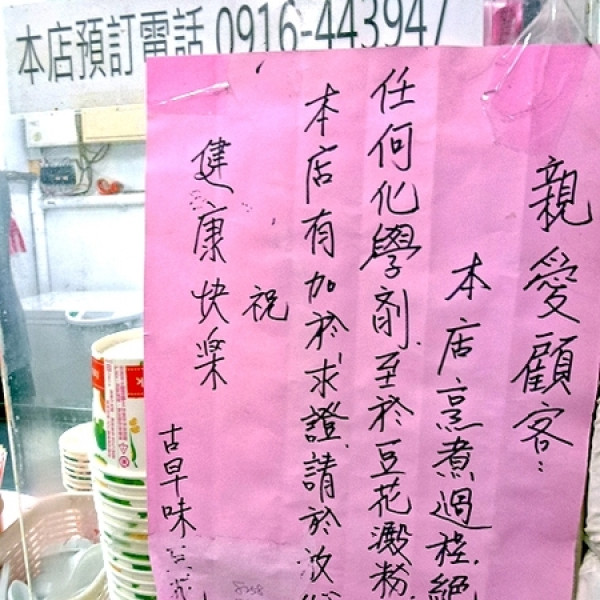 本店預訂電話 0916-443947
親愛顧客：
本店烹煮過程絕
任何化學劑.至於豆花澱粉.
本店有加於求證.請於放
祝
健康快樂
古早味豆花